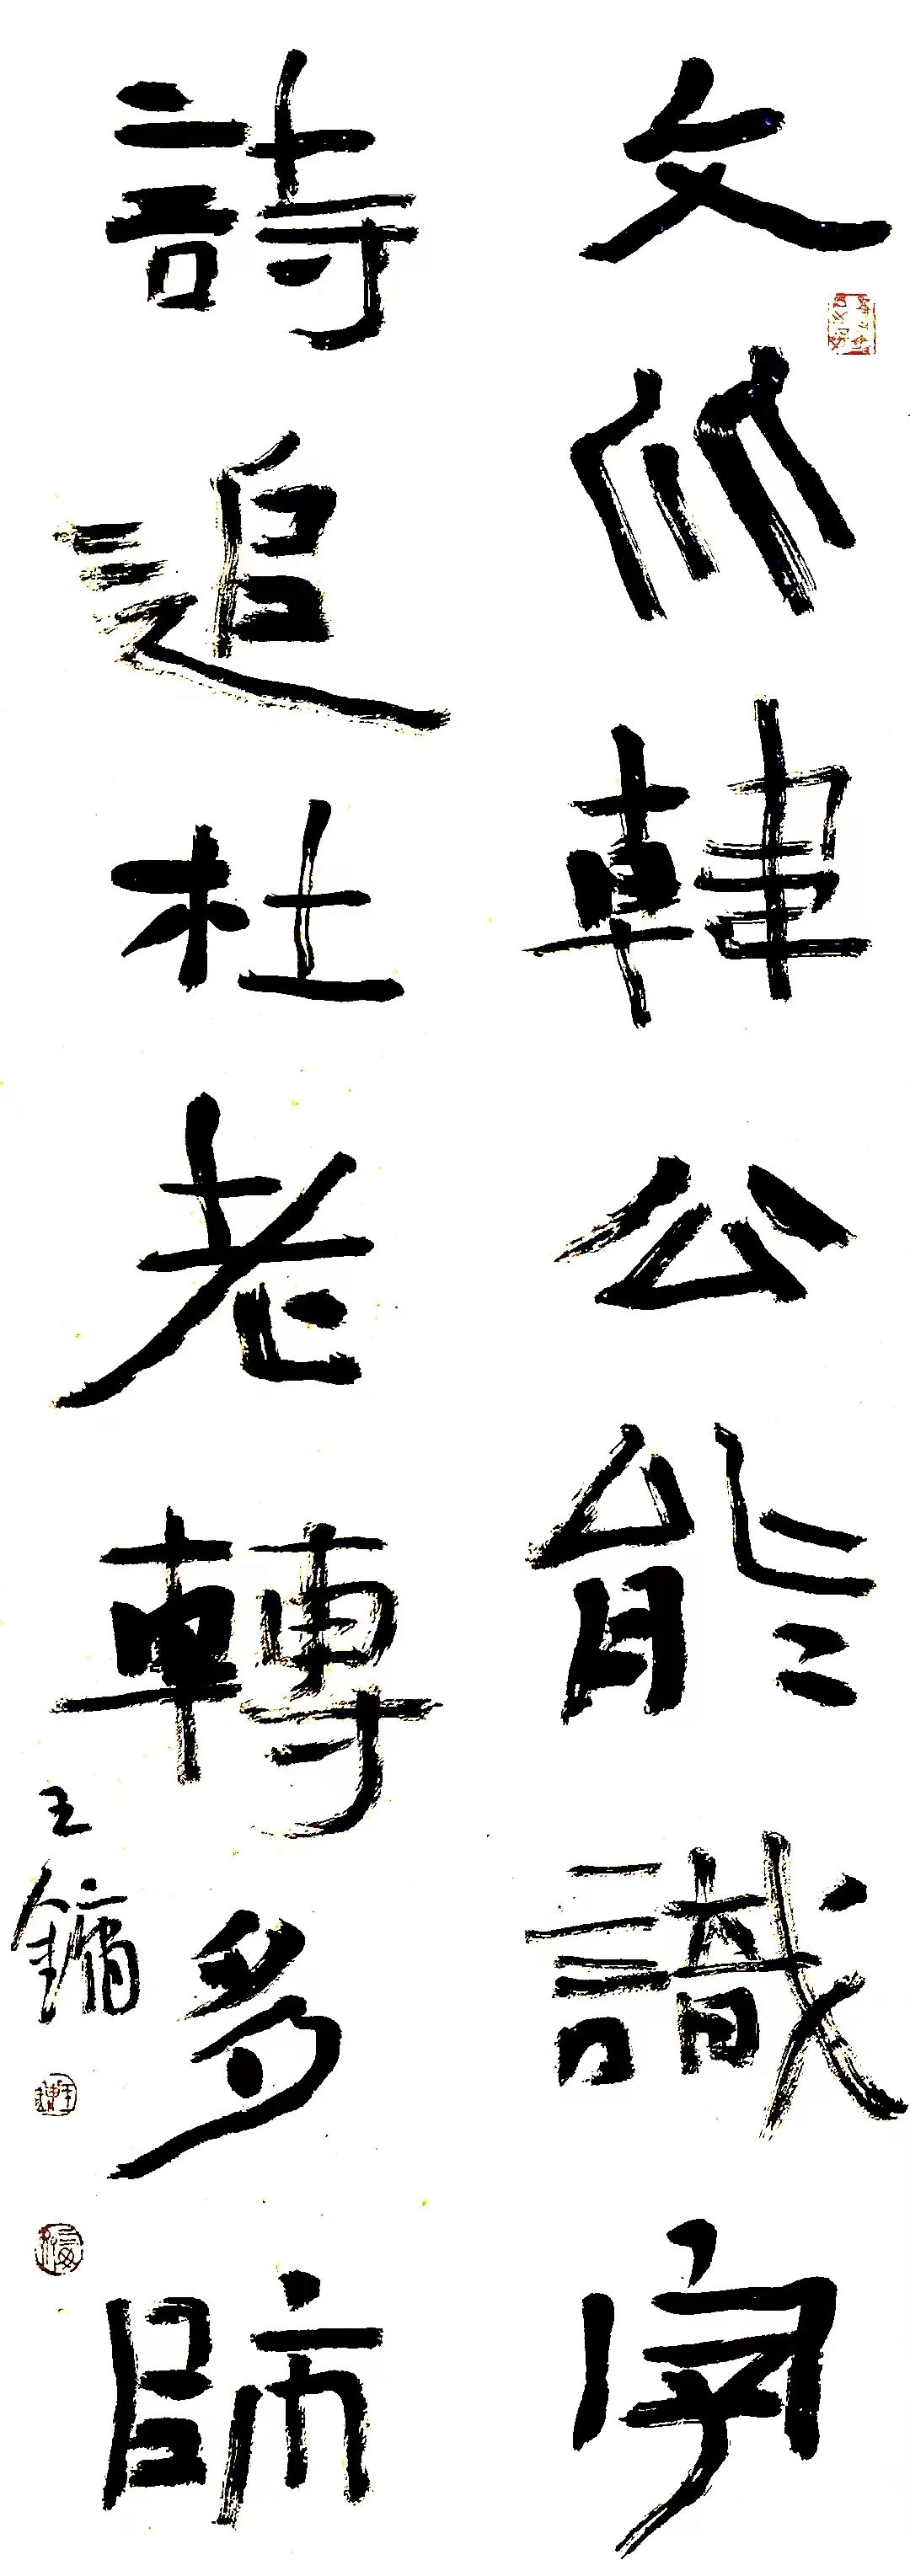 文从韓公能識字
詩追杜老轉多師
王鏞